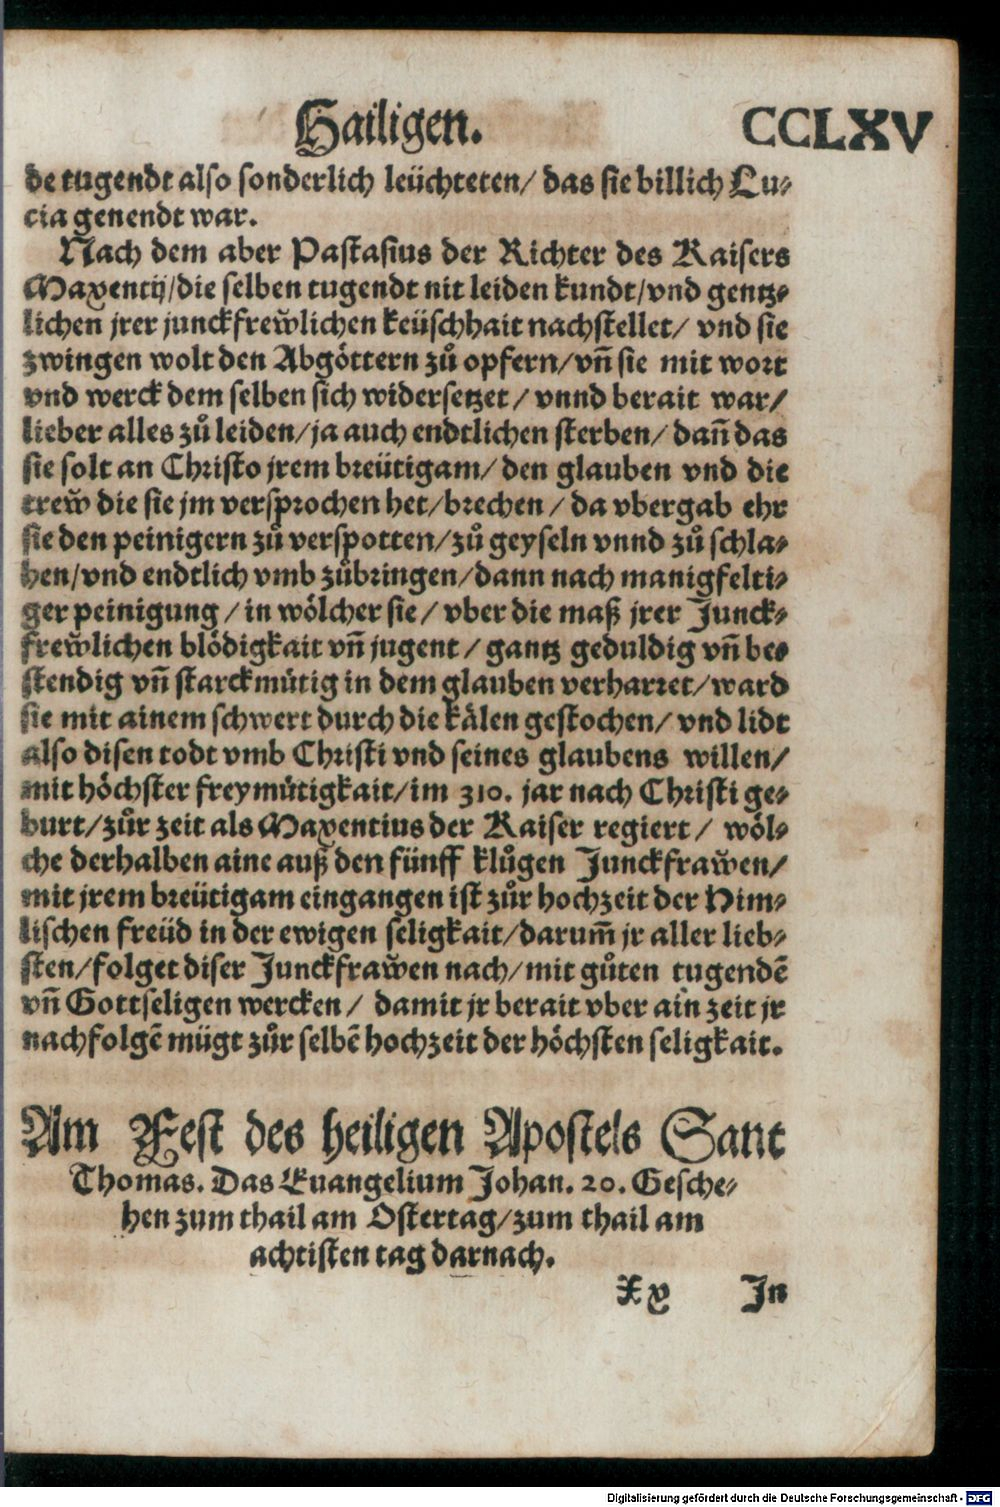 Hailigen. CCLXV
de tugendt also sonderlich leüchteten/ das sie billich Lu-
cia genendt war.
Nach dem aber Pastasius der Richter des Kaisers
Maxentij/die selben tugendt nit leiden kundt/vnd gentz-
lichen jrer junckfrew̆lichen keüschhait nachstellet/ vnd sie
zwingen wolt den Abgöttern zů opfern/vñ sie mit wort
vnd werck dem selben sich widersetzet/ vnnd berait war/
lieber alles zů leiden/ja auch endtlichen sterben/ dañ das
sie solt an Christo jrem breütigam/ den glauben vnd die
trew̆ die sie jm versprochen het/brechen / da vbergab ehr
sie den peinigern zů verspotten/zů geyseln vnnd zů schla-
hen/vnd endtlich vmb zůbringen/dann nach manigfelti-
ger peinigung / in wölcher sie/ vber die maß jrer Junck-
frew̆lichen blödigkait vñ jugent / gantz geduldig vñ bes
stendig vñ starckmůtig in dem glauben verharret/ward
sie mit ainem schwert durch die kälen gestochen/ vnd lidt
also disen todt vmb Christi vnd seines glaubens willen/
mit höchster freymůtigkait/im 310. jar nach Christi ge-
burt/zůr zeit als Maxentius der Kaiser regiert/ wöl-
che derhalben aine auß den fünff klůgen Junckfraw̆en/
mit jrem breütigam eingangen ist zůr hochzeit der Him-
lischen freüd in der ewigen seligkait/darum̃ jr aller lieb-
sten/folget diser Junckfraw̆en nach/mit gůten tugendẽ
vñ Gottseligen wercken/ damit jr berait vber ain zeit jr
nachfolgẽ mügt zůr selbẽ hochzeit der höchsten seligkait.
Am Fest des heiligen Apostels Sant
Thomas. Das Euangelium Johan. 20. Gesche-
hen zum thail am Ostertag/zum thail am
achtisten tag darnach.
Xx In
Digitalisierung gefördert durch die Deutsche Forschungsgemeinschaft - DFG